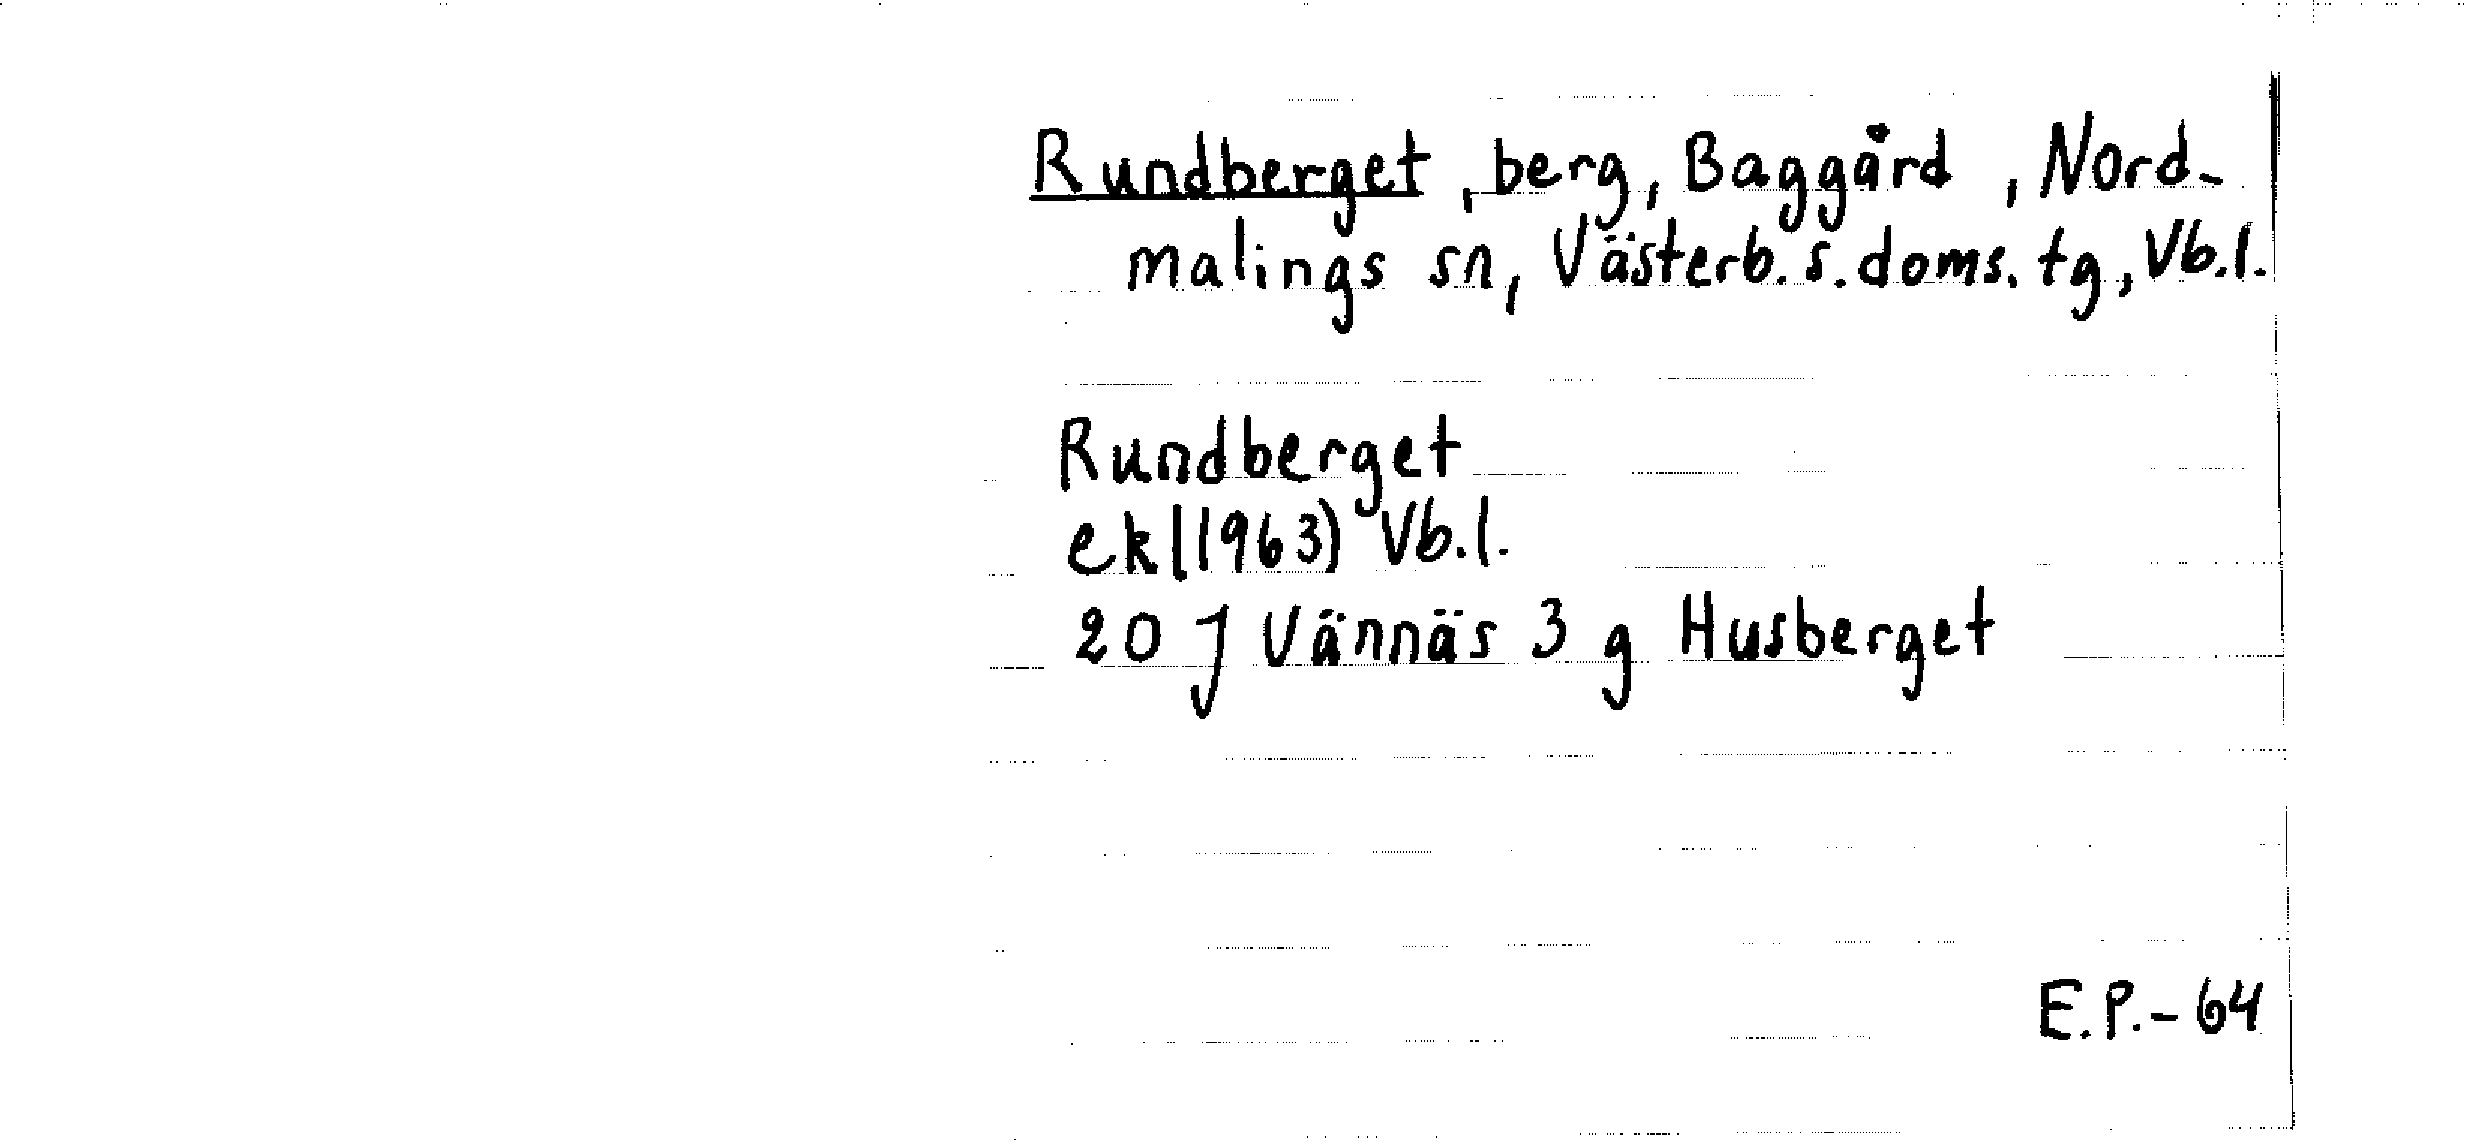 Rundberget, berg, Baggård, Nord-
malings sn, Västerb. s. doms. tg, Vb. l.
Rundberget
ek (1963) Vb. l.
20 J Vännäs 3 g Husberget
E.P.-64